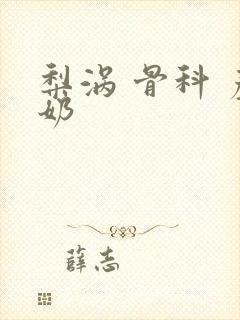 梨涡 骨科
奶
薛志